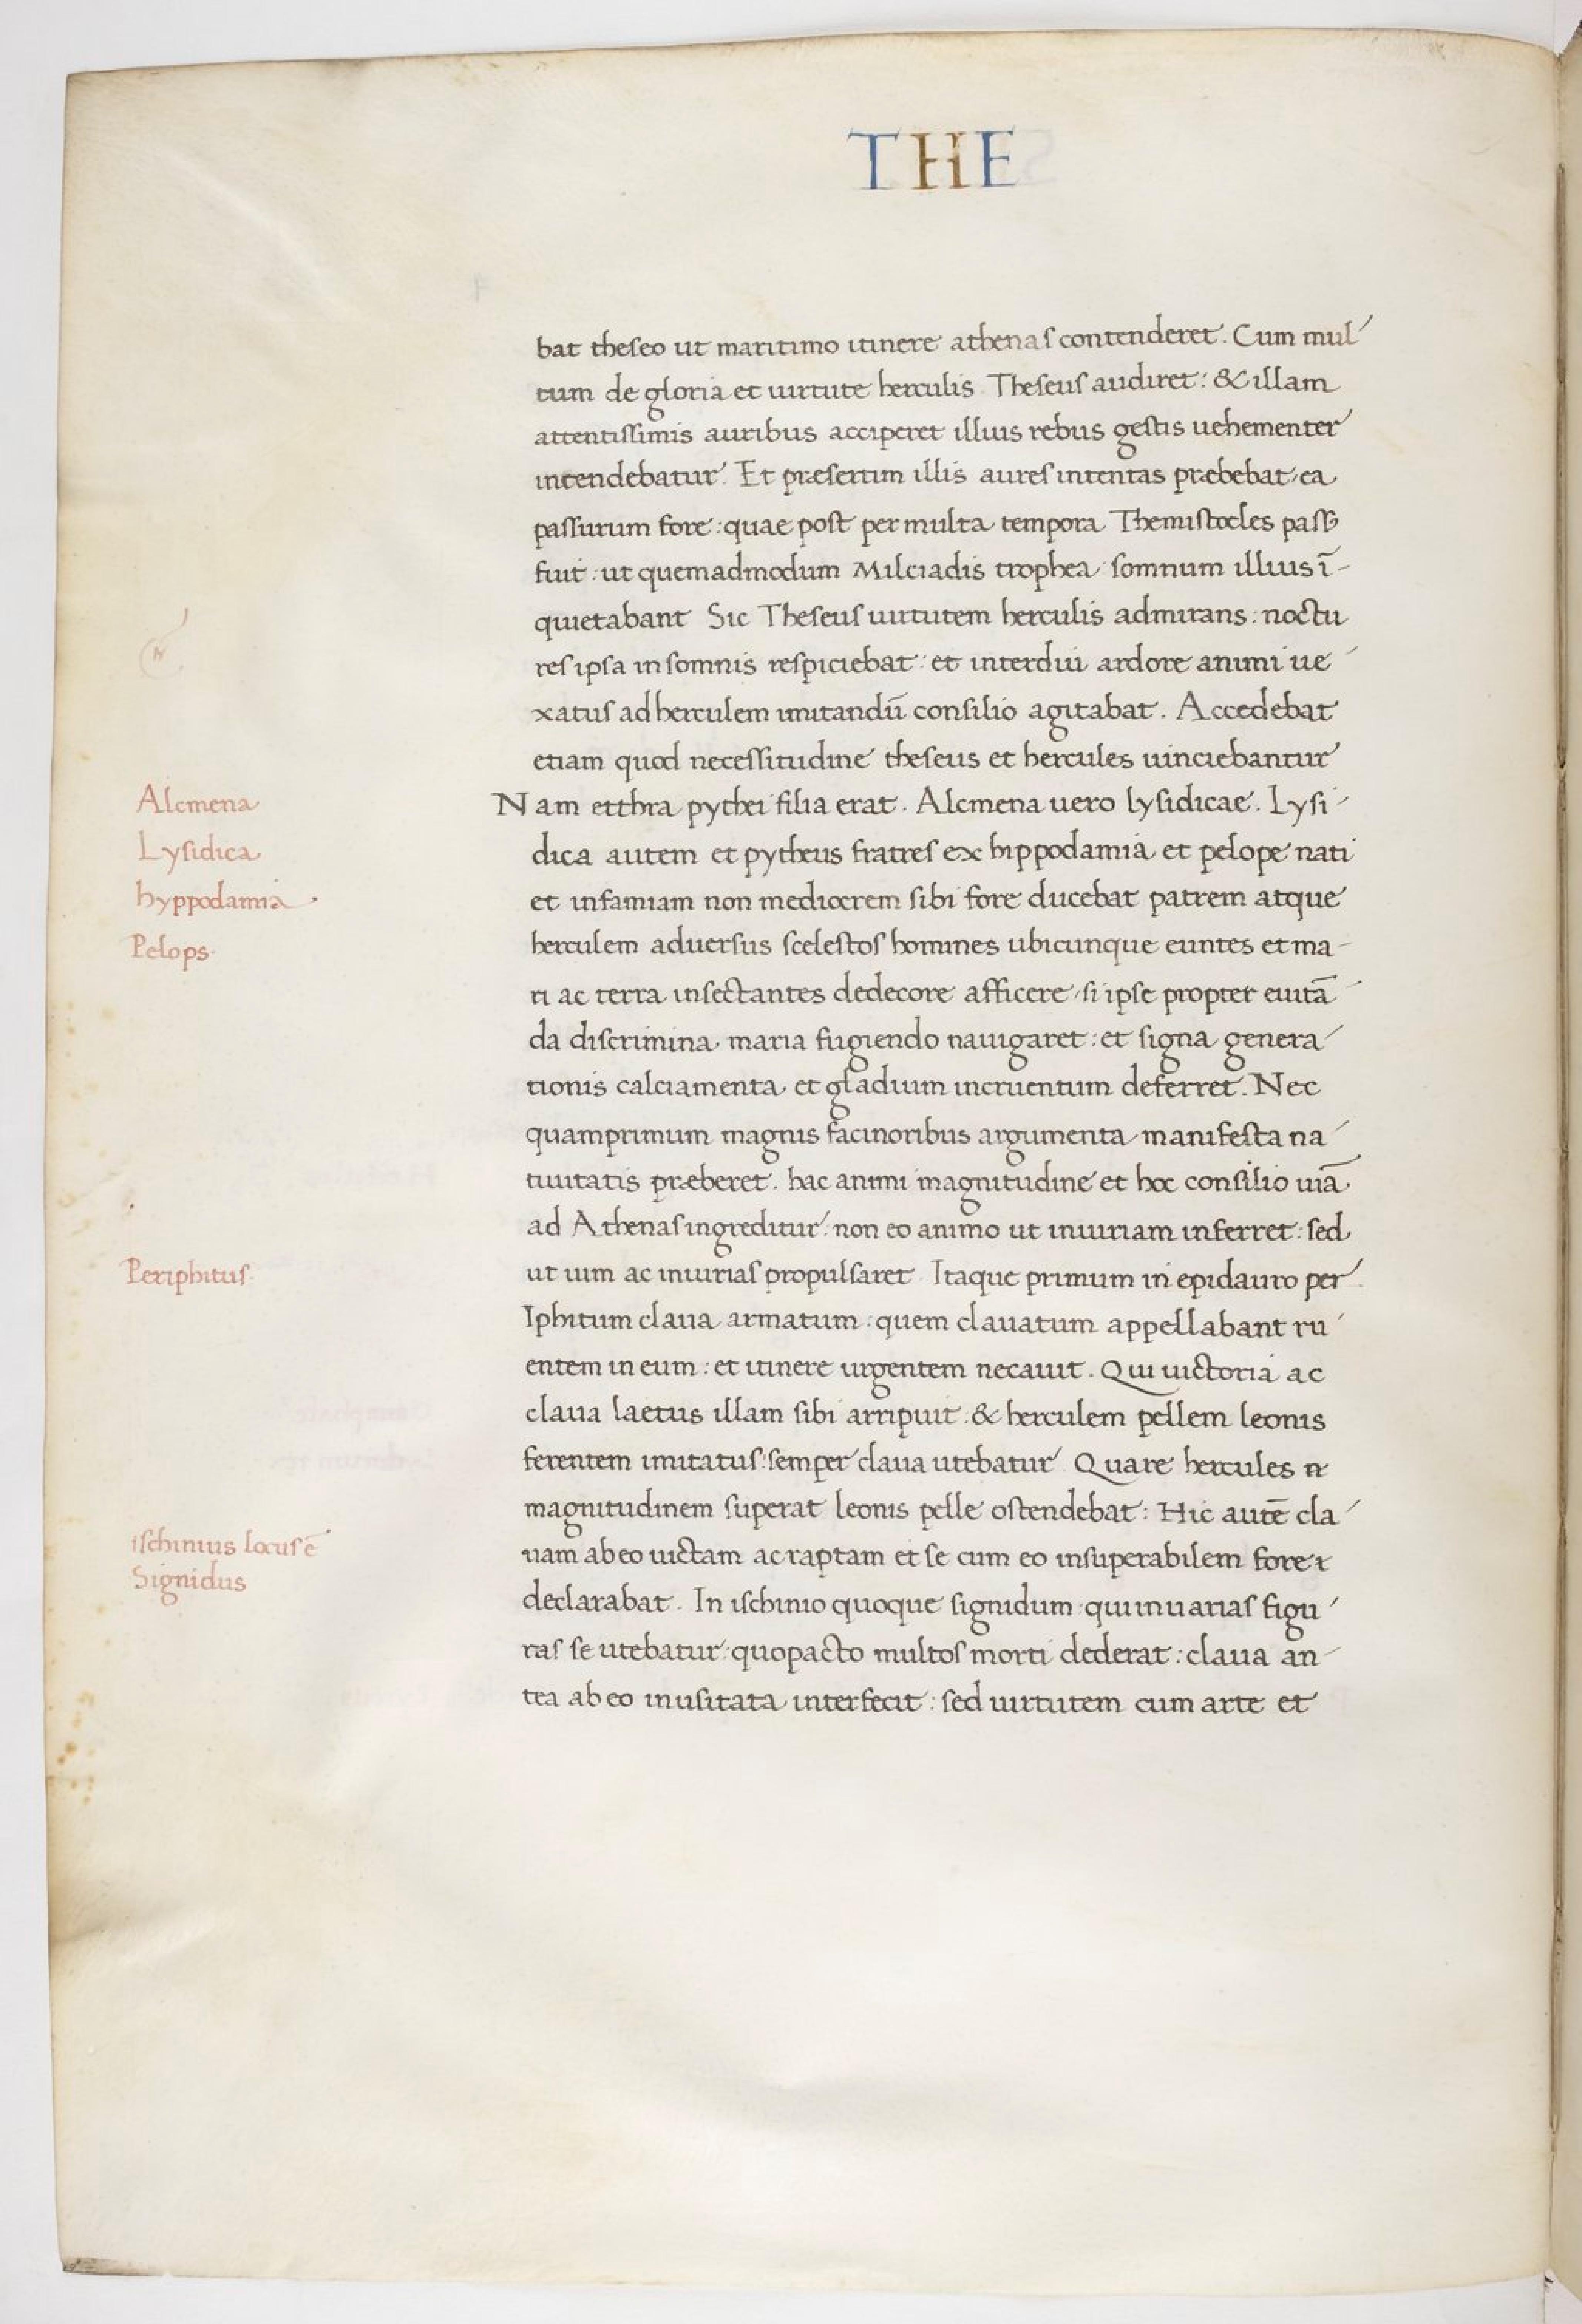 THE
bat theseo ut maritimo itinere athenas contenderet. Cum mul
tum de gloria et uirtute herculis Theseus audiret: & illam
attentissimis auribus acciperet illius rebus gestis uehementer
intendebatur. Et præsertim illis aures intentas præbebat, ea
passurum fore: quae post per multa tempora Themistocles pass9
fuit: ut quemadmodum Milciadis trophea somnum illius ī-
quietabant Sic Theseus uirtutem herculis admirans: noctu
res ipsa in somnis respiciebat: et interdiu ardore animi ue
xatus ad herculem imitandū consilio agitabat. Accedebat
etiam quod necessitudine theseus et hercules uinciebantur
Nam etthra pythei filia erat. Alcmena uero lysidicae. Lysi-
dica autem et pytheus fratres ex hippodamia et pelope nati
et infamiam non mediocrem sibi fore ducebat patrem atque
herculem aduersus scelestos homines ubicunque euntes et ma-
ri ac terra insectantes dedecore afficere, si ipse propter euitā
da discrimina maria fugiendo nauigaret: et signa genera
tionis calciamenta et gladium incruentum deferret. Nec
quamprimum magnis facinoribus argumenta manifesta na
tiuitatis præberet. hac animi magnitudine et hoc consilio uiā
ad Athenas ingreditur: non eo animo ut iniuriam inferret: sed
ut uim ac iniurias propulsaret Itaque primum in epidauro per
Iphitum claua armatum: quem clauatum appellabant ru
entem in eum: et itinere urgentem necauit. Qui uictoria ac
claua laetus illam sibi arripuit: & herculem pellem leonis
ferentem imitatus: semper claua utebatur Quare hercules n̄
magnitudinem superat leonis pelle ostendebat: Hic autē cla
uam ab eo uictam ac raptam et se cum eo insuperabilem fore
declarabat. In ischinio quoque signidum qui in uarias figu
ras se utebatur: quopacto multos morti dederat: claua an-
tea ab eo inusitata interfecit: sed uirtutem cum arte et
Alcmena
Lysidica
hyppodamia
Pelops.
Periphitus.
ischinius locus ē
Signidus